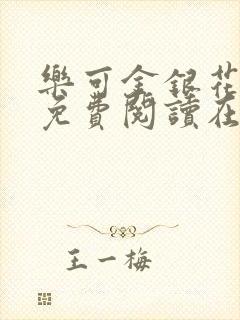 樂可金銀花
免費閱讀在
王一梅